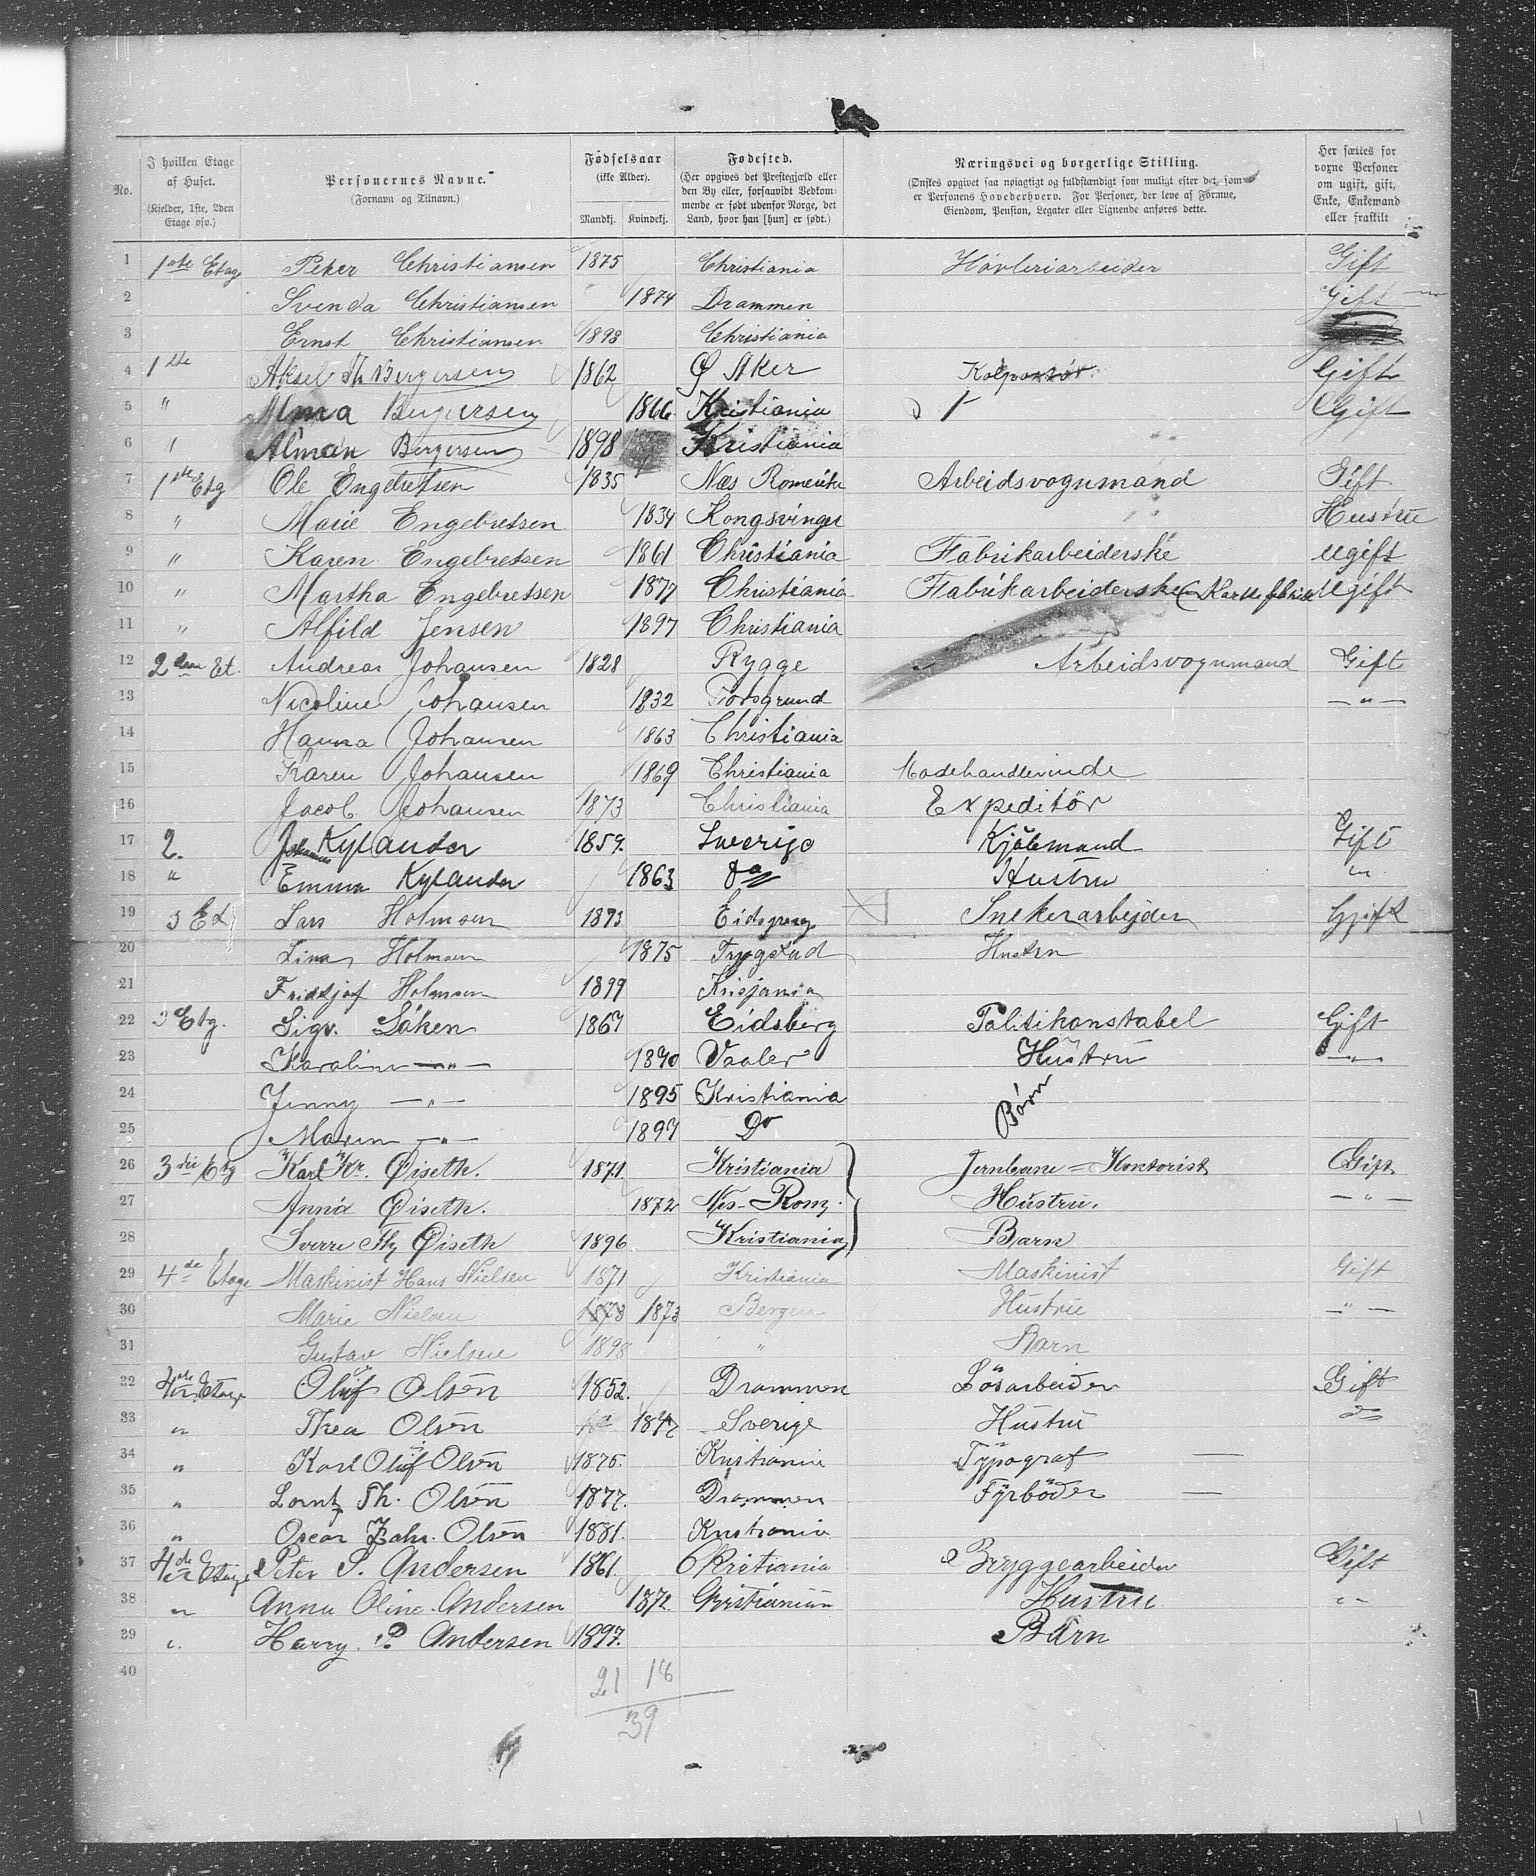 No.
I hvilken Etage af Huset. (Kjelder, 1ste, 2den Etage osv.)
Personernes Navne. (Fornavn og Tilnavn.)
Fødselsaar (ikke Alder). Mandkj. Kvindekj.
Fødested. (Her opgives det Prestegjæld eller den By eller, forsaavidt Vedkommende er født udenfor Norge, det Land, hvor han [hun] er født.)
Næringsvei og borgerlige Stilling. (Ønskes opgivet saa nøiagtigt og fuldstændigt som muligt efter det, som er Personens Hovederhverv. For Personer, der leve af Formue, Eiendom, Pension, Legater eller Lignende anføres dette.
Her sættes for voxne Personer om ugift, gift, Enke, Enkemand eller fraskilt
1 1ste Etage Peter Christiansen 1875 Christiania Høvleriarbeider Gift
2 Svenda Christiansen 1874 Drammen Gift
3 Ernst Christiansen 1898 Christiania
4 1ste Aksel Th Bergersen 1862 Ø Aker Kolportør Gift
5 " Alma Bergersen 1866 Kristiania Gift
6 " Alman Bergersen 1898 Kristiania
7 1ste Etg Ole Engebretsen 1835 Næs Romerike Arbeidsvognmand Gift
8 " Marie Engebretsen 1834 Kongsvinger Hustru
9 " Karen Engebretsen 1861 Christiania Fabrikarbeiderske Ugift
10 " Martha Engebretsen 1877 Christiania Fabrikarbeiderske Ugift
11 " Alfild Jensen 1897 Christiania
12 2den Et. Andreas Johansen 1828 Rygge Arbeidsvognmand Gift
13 Nicoline Johansen 1832 Porsgrund — " —
14 Hanna Johansen 1863 Christiania
15 Karen Johansen 1869 Christiania Modehandlerinde
16 Jacob Johansen 1873 Christiania Expeditør
17 2. Johannes Kylander 1859. Sverige Kjølemand Gift
18 " Emma Kylander 1863 do Hustru "
19 3 Et Lars Holmsen 1873 Eidsberg Snekerarbejder Gjift
20 Lina Holmsen 1875 Trøgstad Hustru
21 Fridtjof Holmsen 1899 Krisjania
22 3 Etg. Sigv. Løken 1867 Eidsberg Politikonstabel Gift
23 Karoline — " — 1870 Vaaler Hustru — " —
24 Jenny — " — 1895 Kristiania Børn
25 Maren — " — 1897 Do
26 3die Etg Karl Kr. Øiseth. 1871. Kristiania Jernbane = Kontorist Gift
27 Anna Øiseth. 1872 Nes - Rom. Hustru. — " —
28 Sverre Th Øiseth 1896 Kristiania Barn
29 4de Etage Maskinist Hans Nielsen 1871 Kristiania Maskinist Gift
30 Marie Nielsen 1873 1873 Bergen Hustru — " —
31 Gustav Nielsen 1898 " Barn
32 4de Etage Oluf Olsen 1852. Drammen Løsarbeider Gift
33 " Thea Olsen Sverige Hustru do
34 " Karl Oluf Olsen 1875. Kristiania Typograf —
35 " Lorntz Th. Olsen 1877. Drammen Fyrbøder —
36 " Oscar Joh. Olsen 1881. Kristiania
37 4de Etage Peter P. Andersen 1861. Kristiania Bryggearbeider Gift
38 " Anna Oline Andersen 1872. Kristiania Hustru "
39 " Harry P Andersen 1897. Barn
40
21 18
39